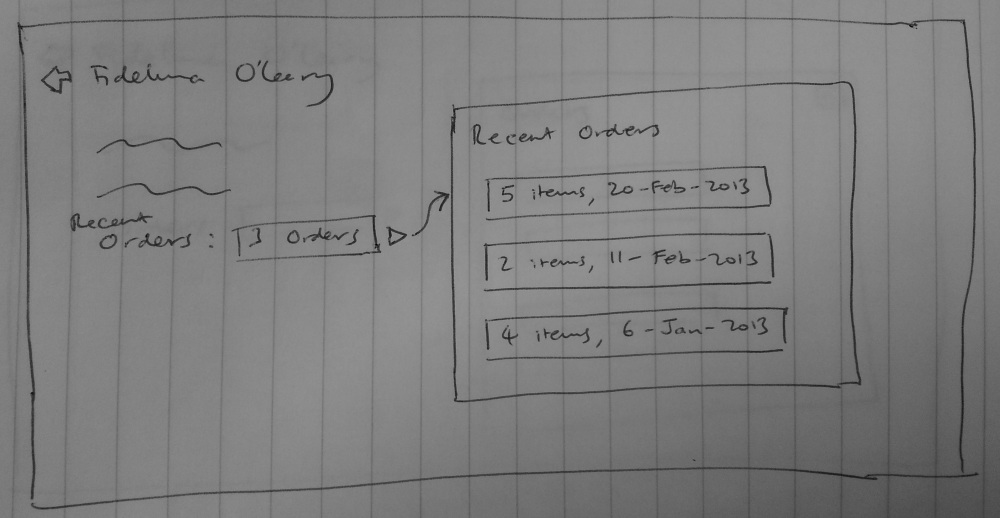 Fidelma O'Leary
Recent
Orders: 3 Orders
Recent Orders
5 items, 20-Feb-2013
2 items, 11-Feb-2013
4 items, 6-Jan-2013